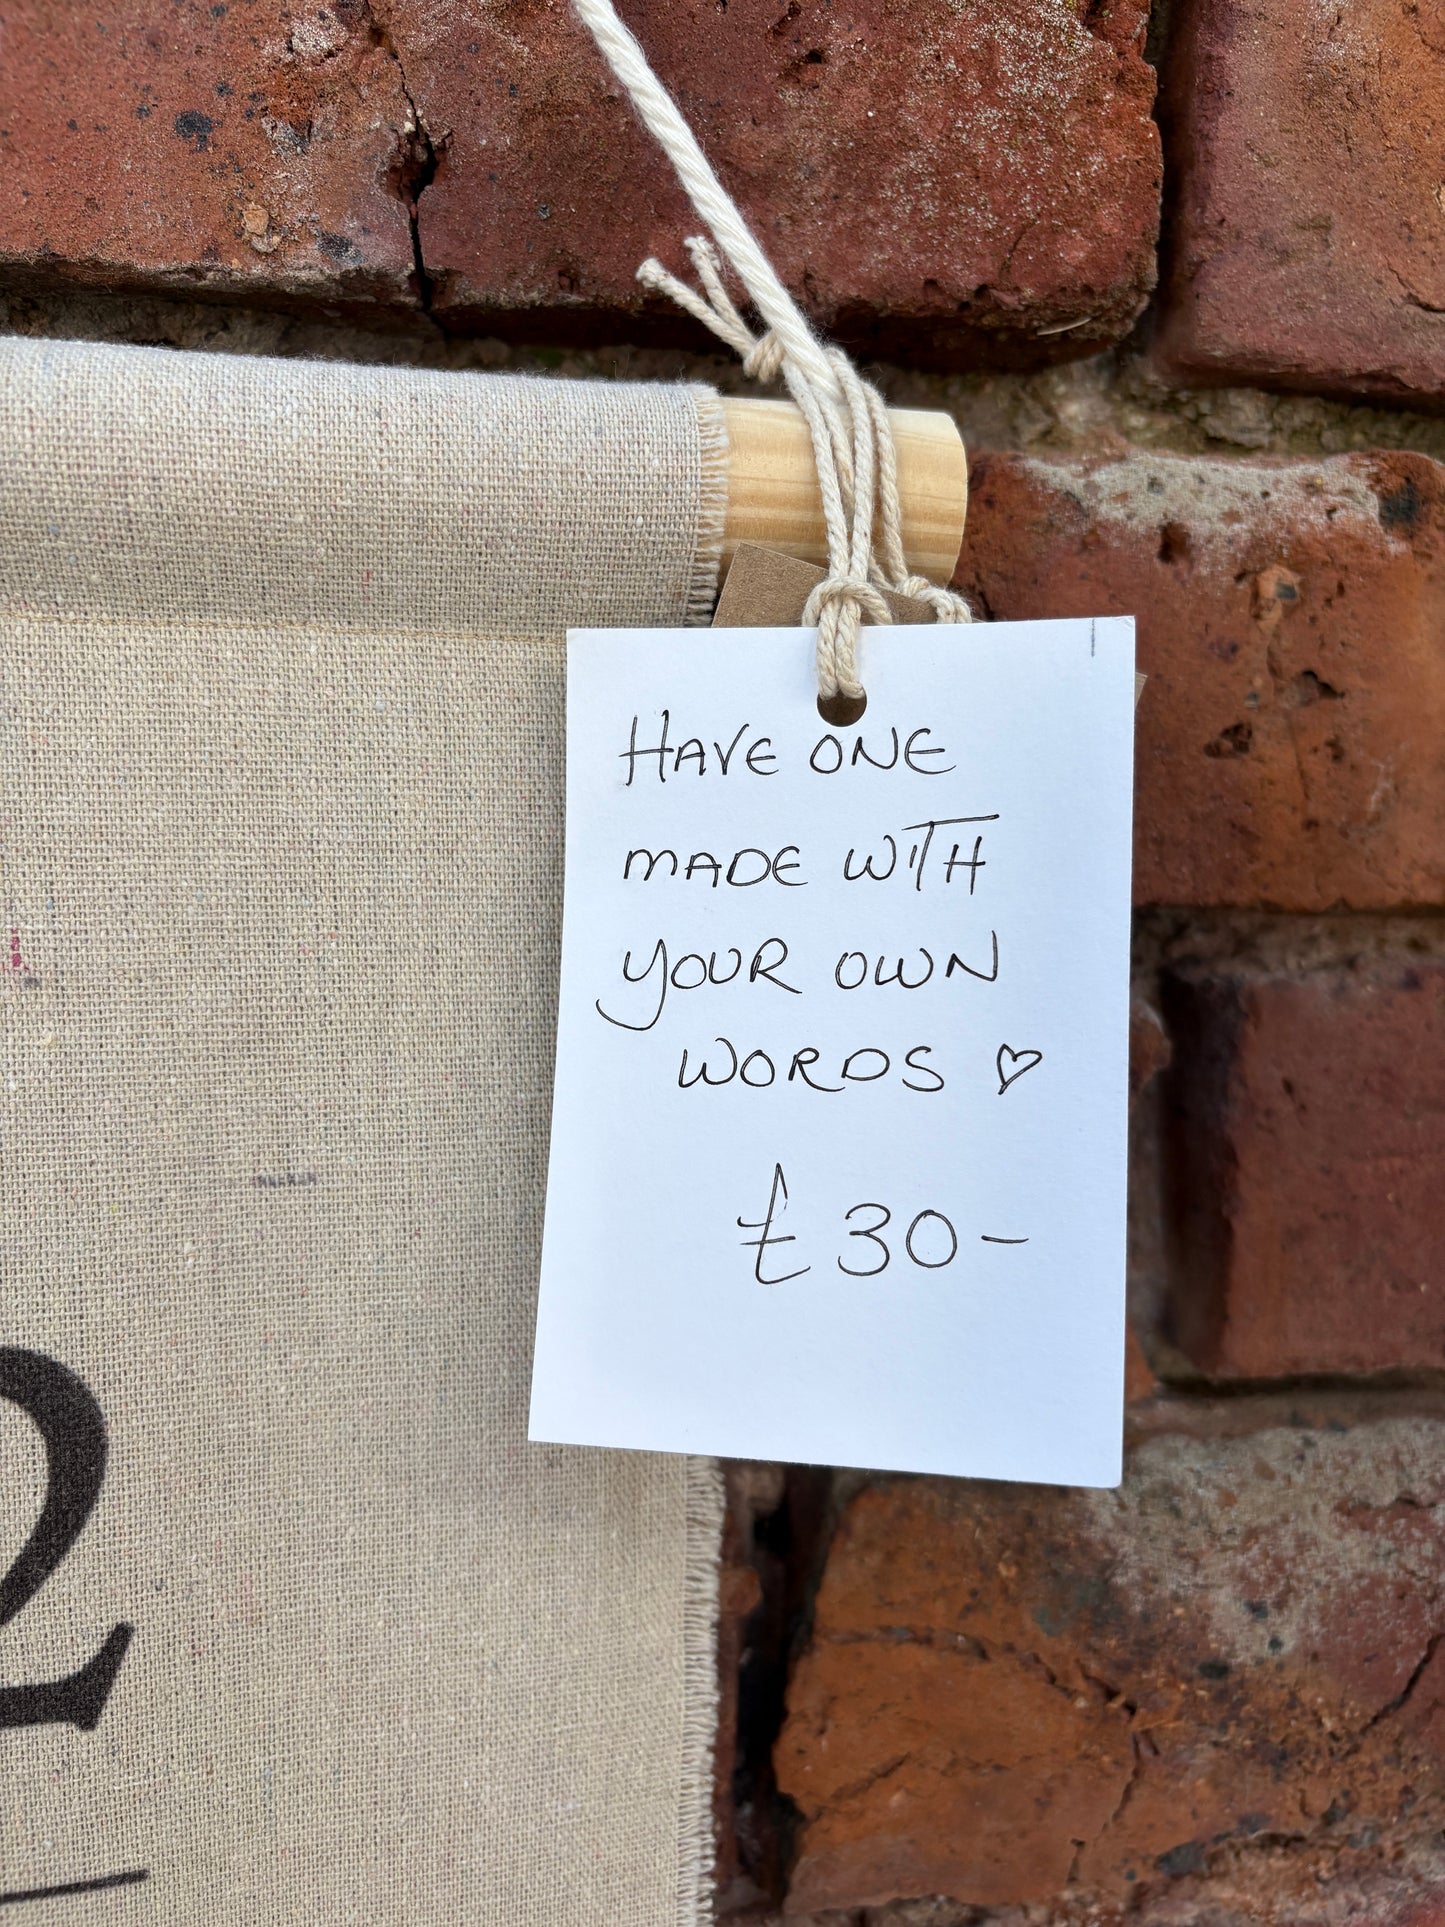 HAVE ONE
MADE WITH
YOUR OWN
WORDS ♡
£30-